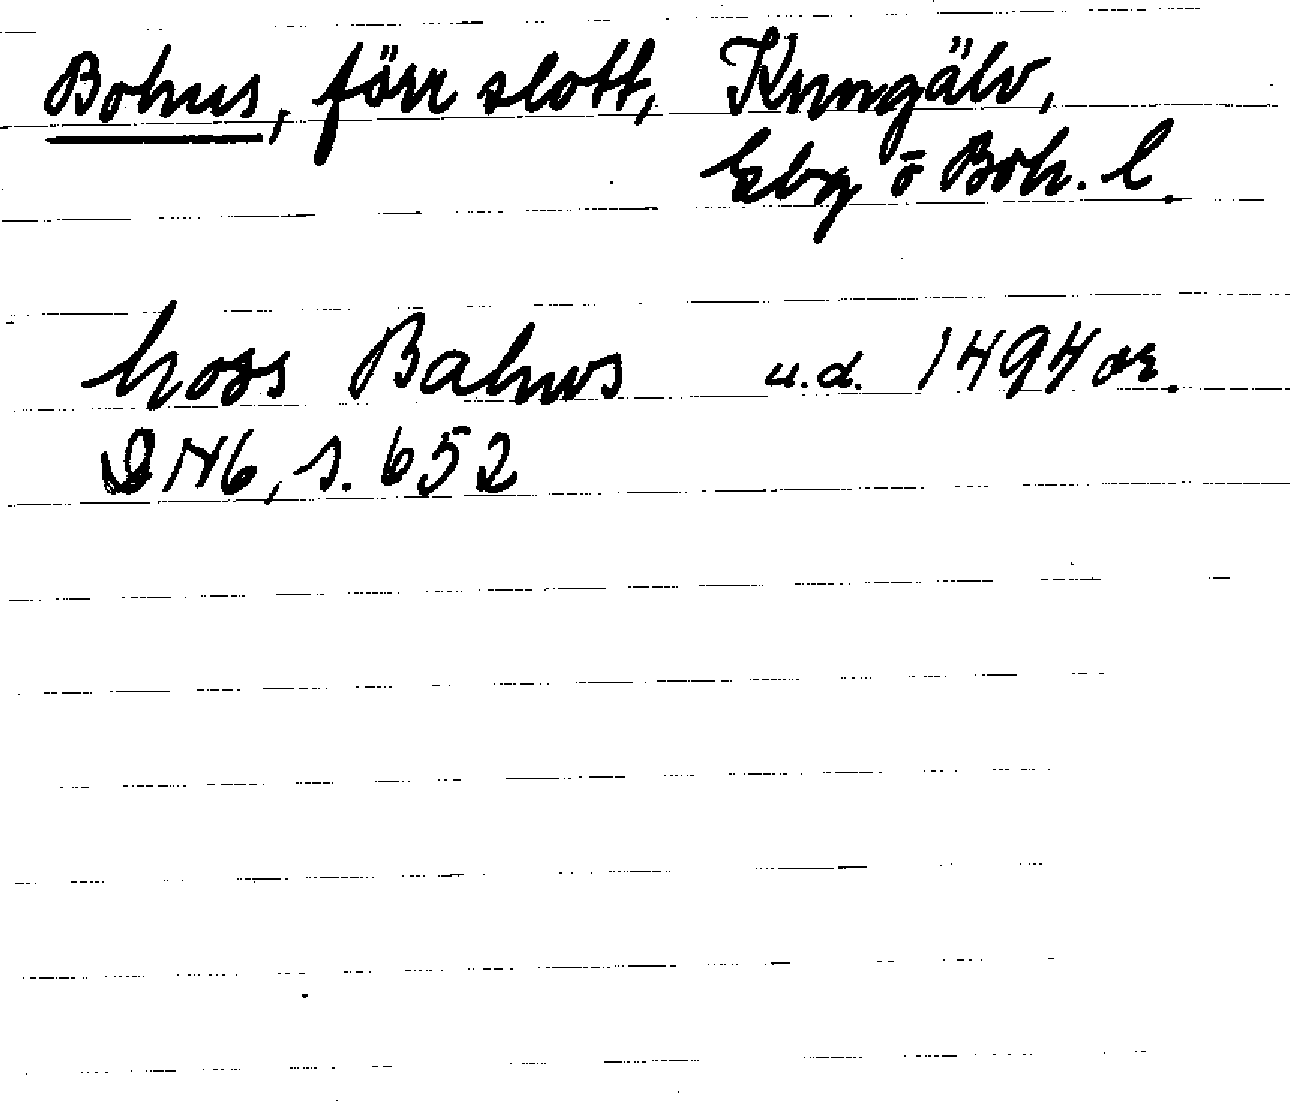 Bohus, förr slott, Kungälv,
Gbg o Boh. l.
hoss Bahws u.d. 1494 or.
DN 6, s. 652